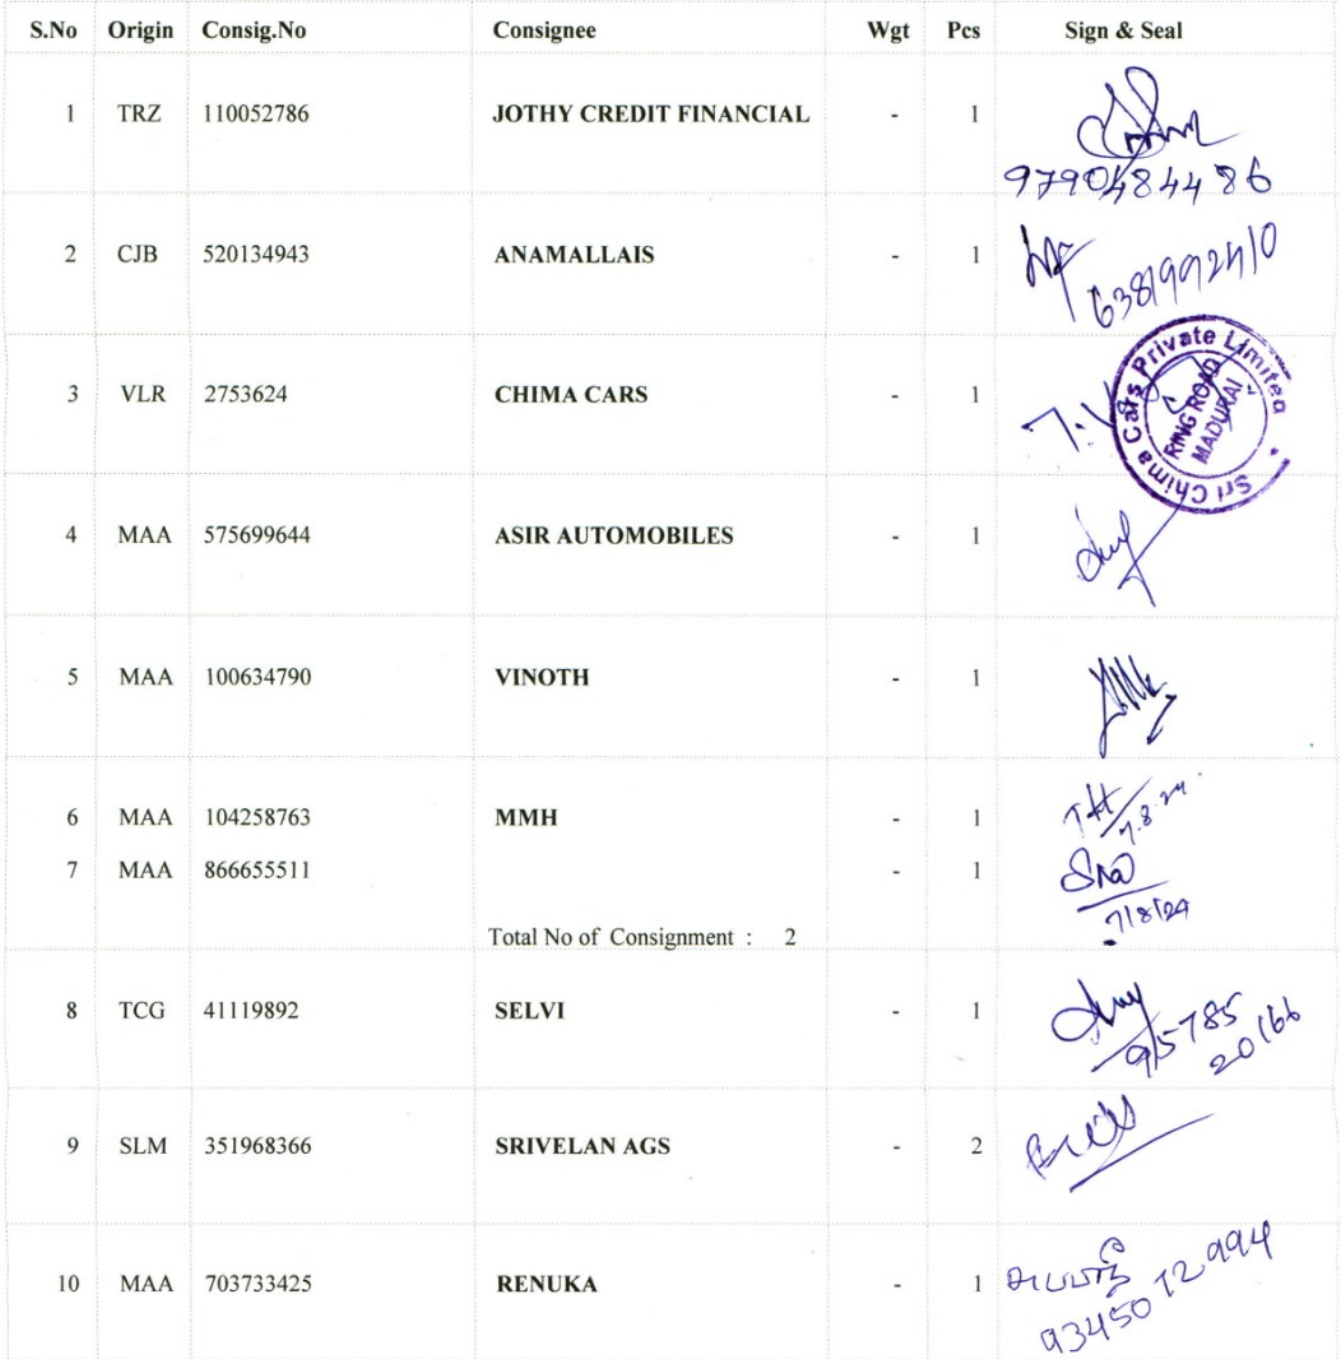 S.No Origin Consig.No Consignee Wgt Pcs Sign & Seal
1 TRZ 110052786 JOTHY CREDIT FINANCIAL - 1
9790484486
2 CJB 520134943 ANAMALLAIS - 1
6381992410
3 VLR 2753624 CHIMA CARS - 1
Sri Chima Cars Private Limited
RING ROAD
MADURAI
4 MAA 575699644 ASIR AUTOMOBILES - 1
5 MAA 100634790 VINOTH - 1
6 MAA 104258763 MMH - 1
7.8.24
7 MAA 866655511 - 1
7/8/24
Total No of Consignment : 2
8 TCG 41119892 SELVI - 1
95785
20166
9 SLM 351968366 SRIVELAN AGS - 2
10 MAA 703733425 RENUKA - 1
93450 12994